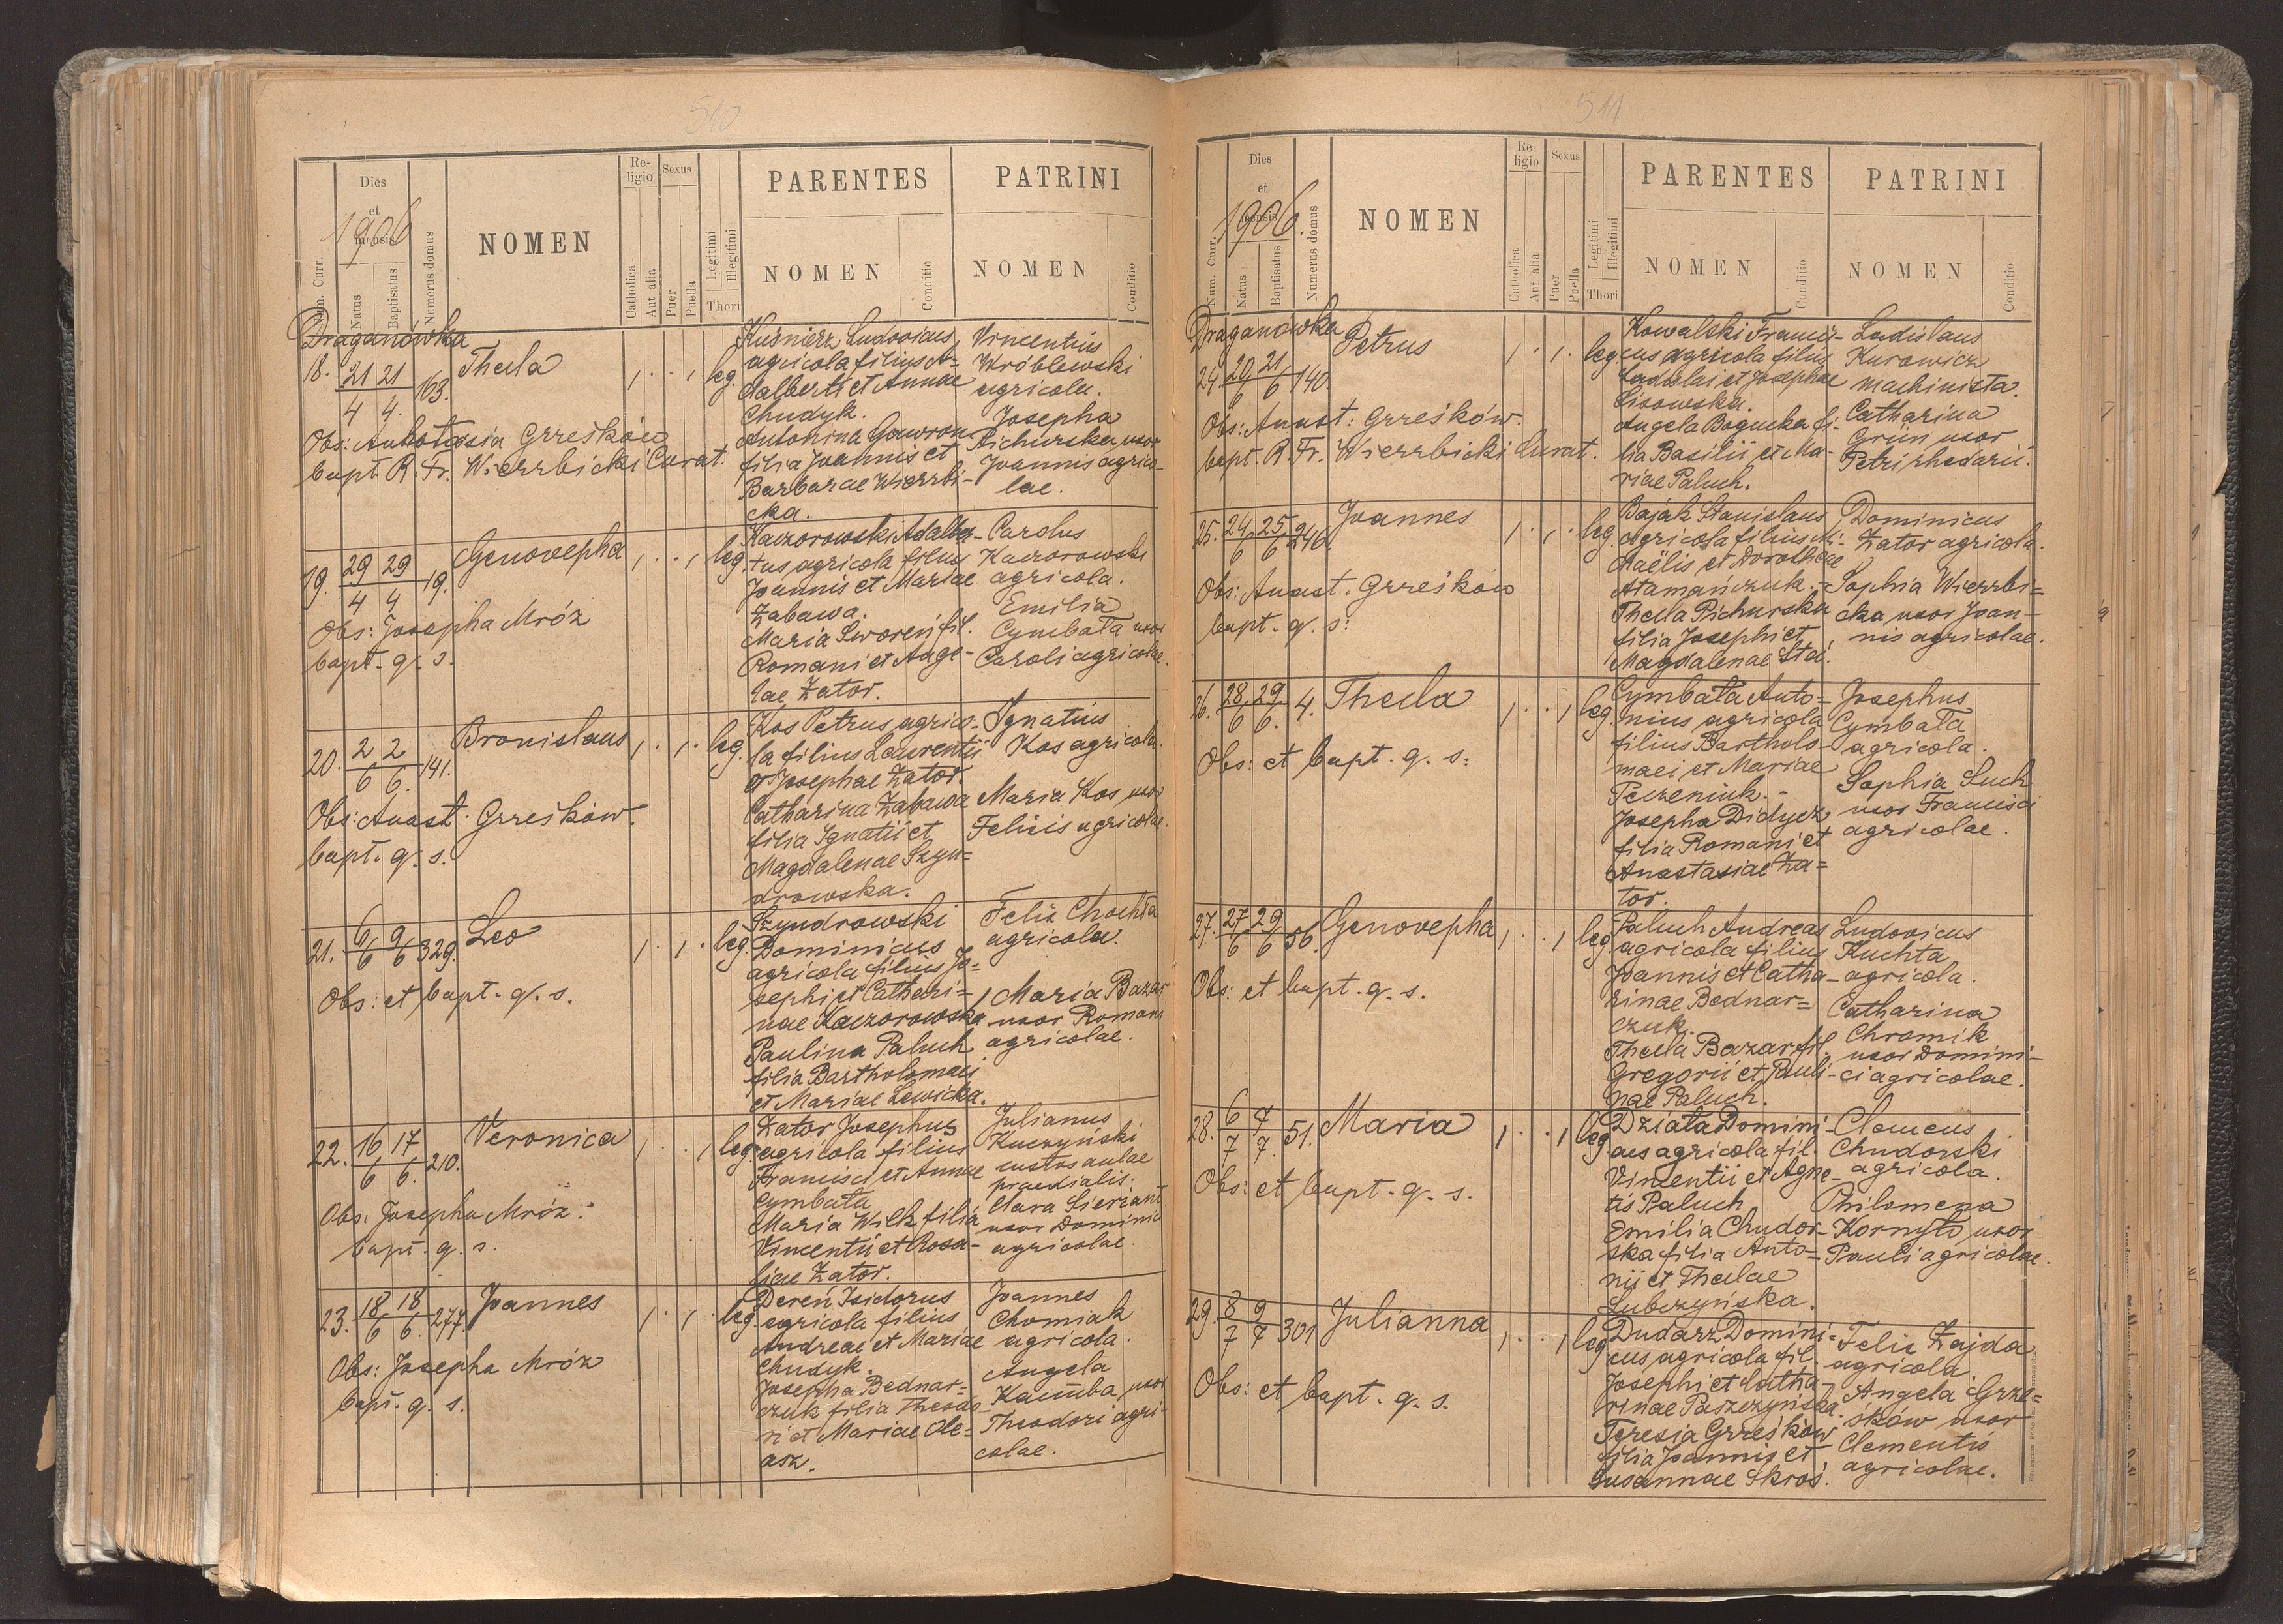 510
Dies et mensis
1906
Num. Curr.
Natus
Baptisatus
Numerus domus
NOMEN
Religio
Catholica
Aut alia
Sexus
Puer
Puella
Legitimi
Illegitimi
Thori
PARENTES
NOMEN
Conditio
PATRINI
NOMEN
Conditio
Draganówka
18. 21/4 21/4. 163. Thecla 1 1 leg.
Obs: Anastasia Grześków
bapt. R. Fr. Wierzbicki Curat.
Kuśnierz Ludovicus
agricola filius A-
dalberti et Annae
Chudyk.
Antonina Gawron
filia Joannis et
Barbarae Wierzbi-
cka.
Vincentius
Wróblewski
agricola.
Josepha
Pichurska uxor
Joannis agrico-
lae.
19. 29/4 29/4. 19. Genovepha 1 1 leg.
Obs: Josepha Mróz
bapt. q. s.
Kaczorowski Adalber-
tus agricola filius
Joannis et Mariae
Zabawa.
Maria Sworeń fil.
Romani et Ange-
lae Zator.
Carolus
Kaczorowski
agricola.
Emilia
Cymbała uxor
Caroli agricolae.
20. 2/6 2/6. 141. Bronislaus 1 1 leg.
Obs: Anast. Grześków.
bapt. q. s.
Kos Petrus agrico-
la filius Laurentii
et Josephae Zator.
Catharina Zabawa
filia Ignatii et
Magdalenae Szyn-
drowska.
Ignatius
Kos agricola.
Maria Kos uxor
Felicis agricolae.
21. 6/6 9/6 329. Leo 1 1 leg.
Obs: et bapt. q. s.
Szyndrowski
Dominicus
agricola filius Jo-
sephi et Cathari-
nae Kaczorowska
Paulina Paluch
filia Bartholomaei
et Mariae Lewicka.
Felix Chochta
agricola.
Maria Bazar
uxor Romani
agricolae.
22. 16/6 17/6. 210. Veronica 1 1 leg.
Obs: Josepha Mróz.
bapt. q. s.
Zator Josephus
agricola filius
Francisci et Annae
Cymbała
Maria Wilk filia
Vincentii et Rosa-
liae Zator.
Julianus
Kuczyński
custos aulae
praedialis.
Clara Sierżant
uxor Dominici
agricolae.
23. 18/6 18/6. 277. Joannes 1 1 leg.
Obs: Josepha Mróz
bapt. q. s.
Dereń Isidorus
agricola filius
Andreae et Mariae
Chudyk.
Josepha Bednar-
czuk filia Theodo-
ri et Mariae Ole-
asz.
Joannes
Chomiak
agricola.
Angela
uxor
Theodori agri-
colae.
511
Dies et mensis
1906.
Num. Curr.
Natus
Baptisatus
Numerus domus
NOMEN
Religio
Catholica
Aut alia
Sexus
Puer
Puella
Legitimi
Illegitimi
Thori
PARENTES
NOMEN
Conditio
PATRINI
NOMEN
Conditio
Draganówka
24. 20/6 21/6 140. Petrus 1 1 leg.
Obs: Anast: Grześków.
bapt. R. Fr. Wierzbicki Curat.
Kowalski Francis-
cus agricola filius
Ladislai et Josephae
Lisowska.
Angela Bogucka fi-
lia Basilii et Ma-
riae Paluch.
Ladislaus
Kurowicz
machinista.
Catharina
Grün uxor
Petri rhedarii.
25. 24/6 25/6 246. Joannes 1 1 leg.
Obs: Anast. Grześków
bapt. q. s:
Bajak Stanislaus
agricola filius Mi-
chaëlis et Dorotheae
Atamańczuk.
Thecla Pichurska
filia Josephi et
Magdalenae Stec.
Dominicus
Zator agricola.
Sophia Wierzbi-
cka uxor Joan-
nis agricolae.
26. 28/6 29/6. 4. Thecla 1 1 leg.
Obs: et bapt. q. s:
Cymbała Anto-
nius agricola
filius Bartholo-
maei et Mariae
Peczeniuk.
Josepha Didycz
filia Romani et
Anastasiae Za-
tor.
Josephus
Cymbała
agricola.
Sophia Such
uxor Francisci
agricolae.
27. 27/6 29/6 56. Genovepha 1 1 leg.
Obs: et bapt. q. s.
Paluch Andreas
agricola filius
Joannis et Catha-
rinae Bednar-
czuk.
Thecla Bazar fil.
Gregorii et Pauli-
nae Paluch.
Ludovicus
Kuchta
agricola.
Catharina
Chromik
uxor Domini-
ci agricolae.
28. 6/7 7/7. 51. Maria 1 1 leg
Obs: et bapt. q. s.
Działa Domini-
cus agricola fil.
Vincentii et Agne-
tis Paluch
Emilia Chudor-
ska filia Anto-
nii et Theclae
Lubczyńska.
Clemens
Chudorski
agricola.
Philomena
Kornyło uxor
Pauli agricolae.
29. 8/7 9/7 301 Julianna 1 1 leg
Obs: et bapt. q. s.
Dudarz Domini-
cus agricola fil.
Josephi et Catha-
rinae Paszczyńska.
Teresia Grześków
filia Joannis et
Susannae Skroś.
Felix Zajda
agricola.
Angela Grze-
śków uxor
Clementis
agricolae.